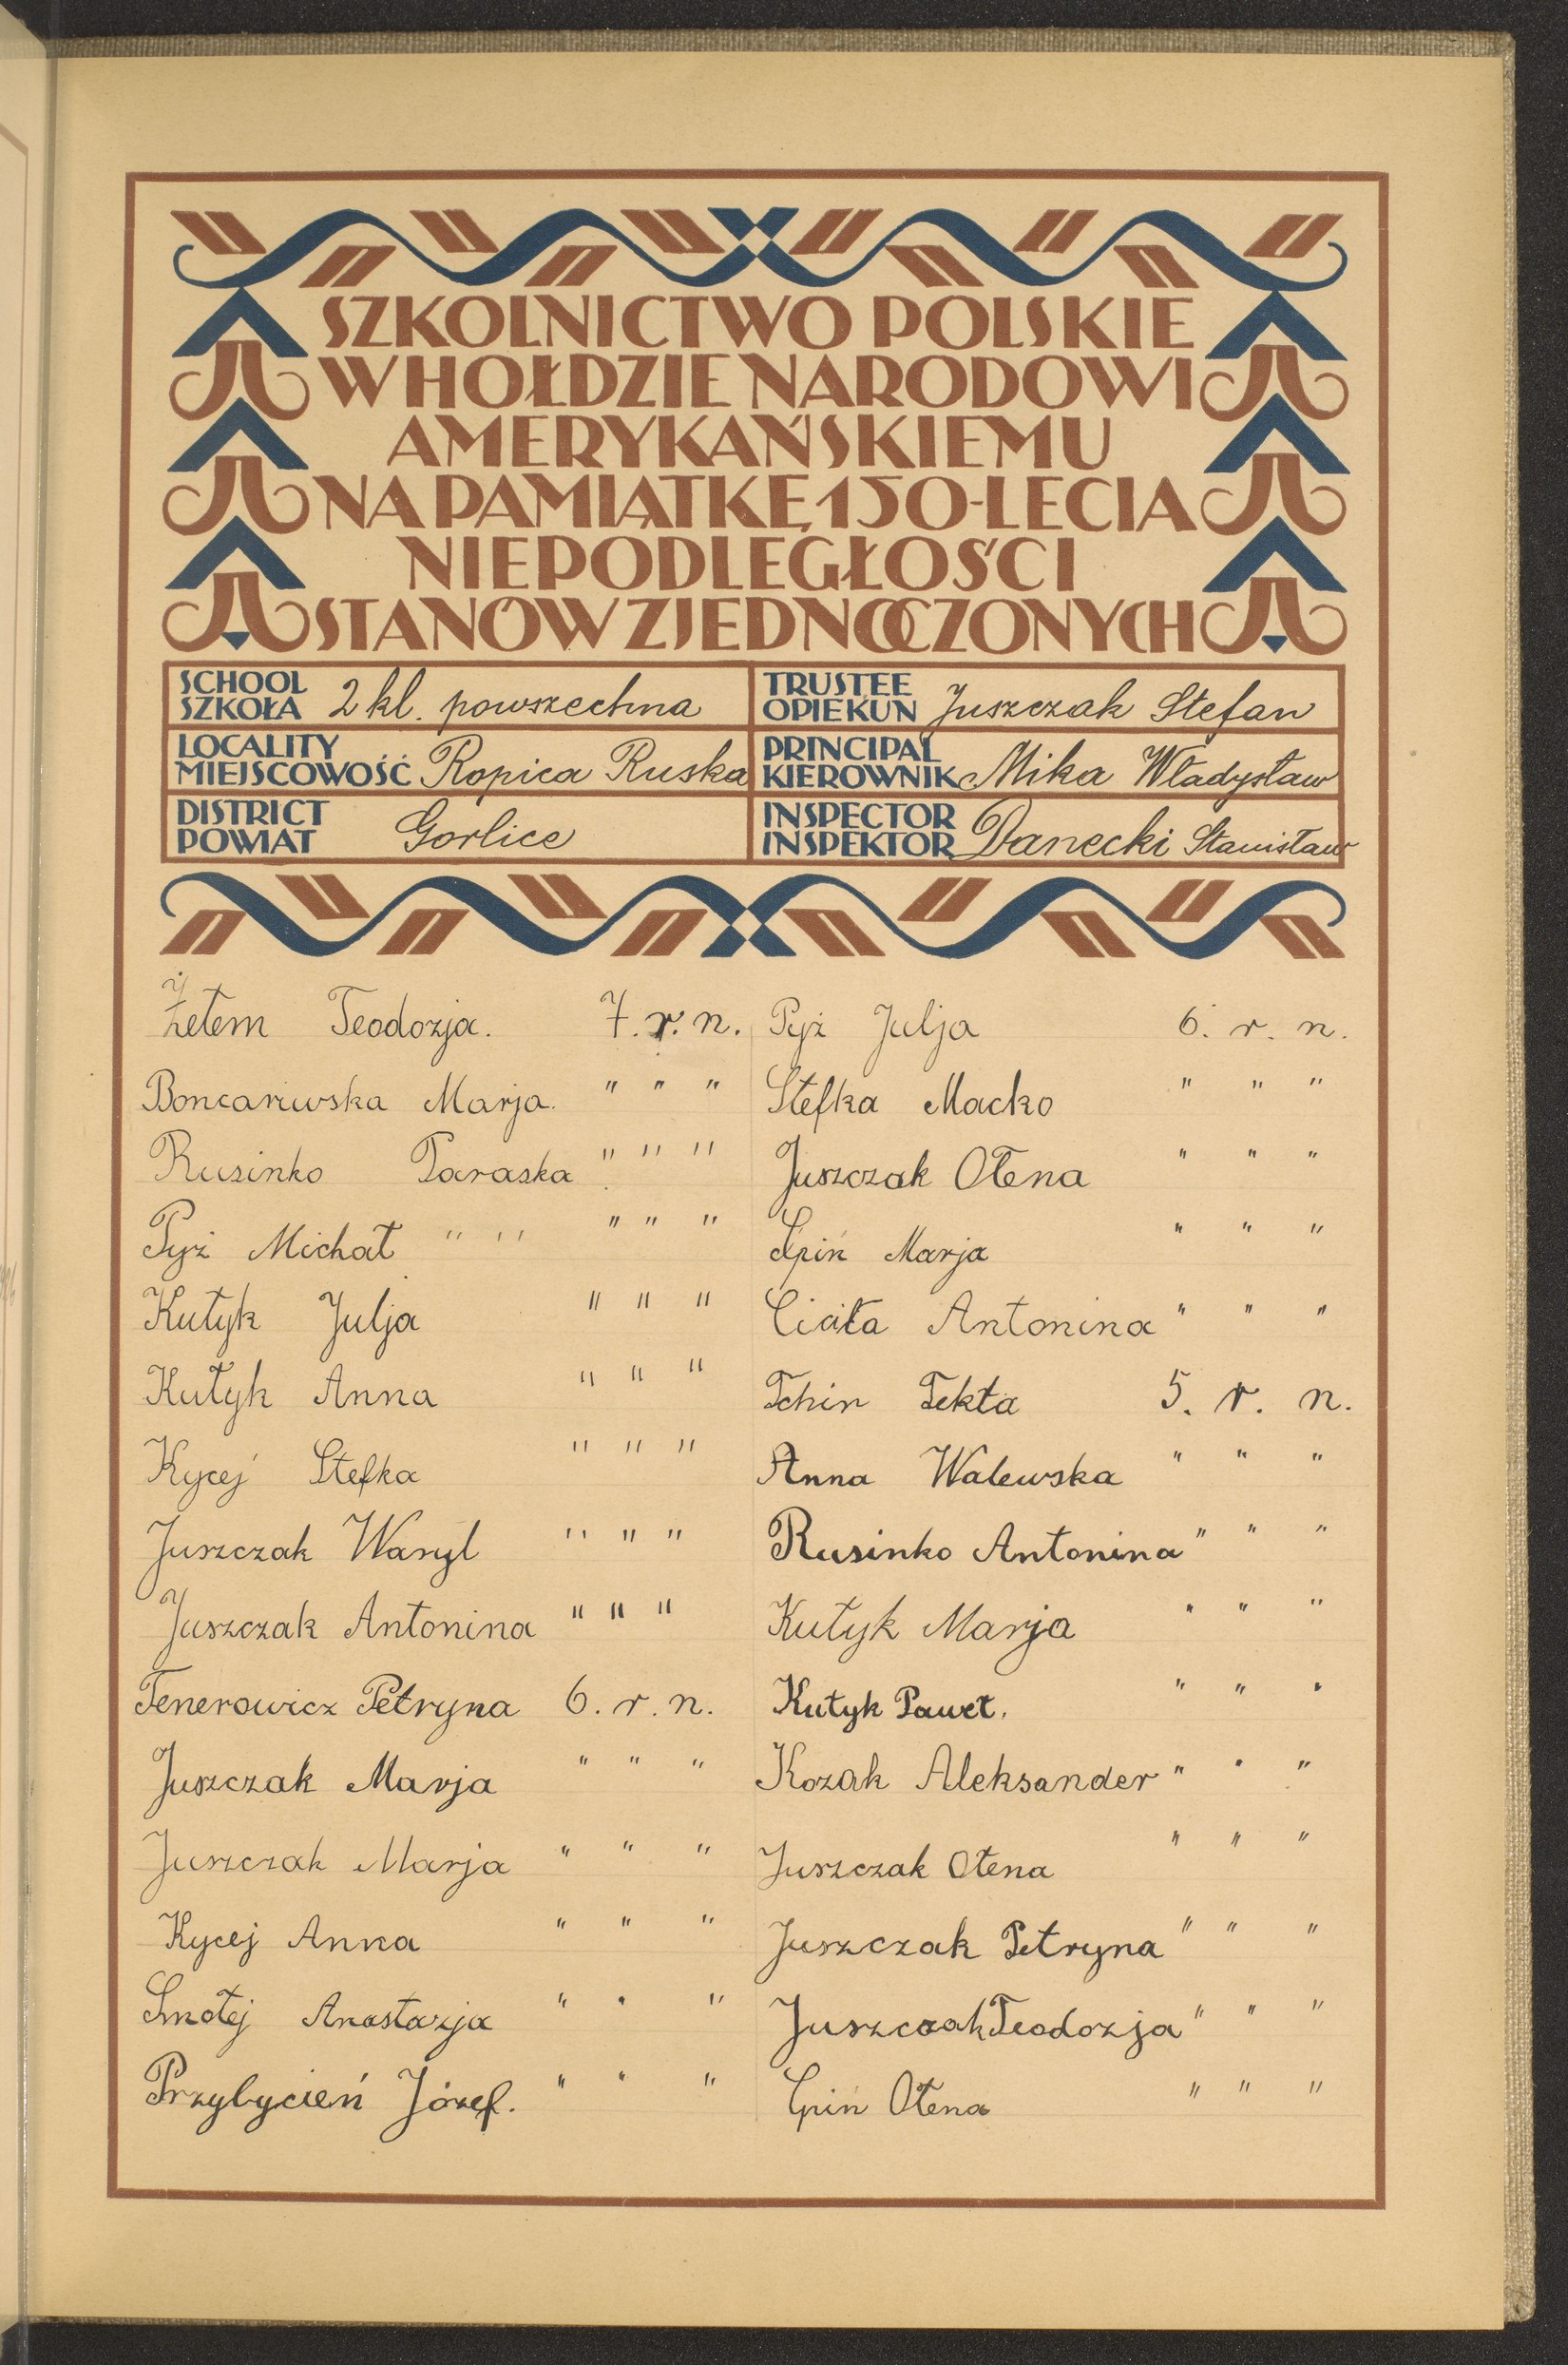 SZKOLNICTWO POLSKIE
W HOŁDZIE NARODOWI
AMERYKAŃSKIEMU
NA PAMIĄTKĘ 150-LECIA
NIEPODLEGŁOŚCI
STANÓW ZJEDNOCZONYCH
SCHOOL
SZKOŁA 2 kl. powszechna
TRUSTEE
OPIEKUN Juszczak Stefan
LOCALITY
MIEJSCOWOŚĆ Ropica Ruska
PRINCIPAL
KIEROWNIK Mika Władysław
DISTRICT
POWIAT Gorlice
INSPECTOR
INSPEKTOR Danecki Stanisław
Teodozja. 7. r. n.
Marja. " " "
Rusinko Paraska " " "
Pyż Michał " " " " "
Kutyk Julja " " "
Kutyk Anna " " "
Kycej Stefka " " "
Juszczak Wasyl " " "
Juszczak Antonina " " "
Tenerowicz Petryna 6. r. n.
Juszczak Marja " " "
Juszczak Marja " " "
Kycej Anna " " "
Smołej Anastazja " " "
Przybycień Józef. " " "
Pyż Julja 6. r. n.
Stefka Macko " " "
Juszczak Ołena " " "
Marja " " "
Antonina " " "
Tekła 5. r. n.
Anna Walewska " " "
Rusinko Antonina " " "
Kutyk Marja " " "
Kutyk Paweł. " " "
Kozak Aleksander " " "
Juszczak Ołena " " "
Juszczak Petryna " " "
Juszczak Teodozja " " "
Ołena " " "